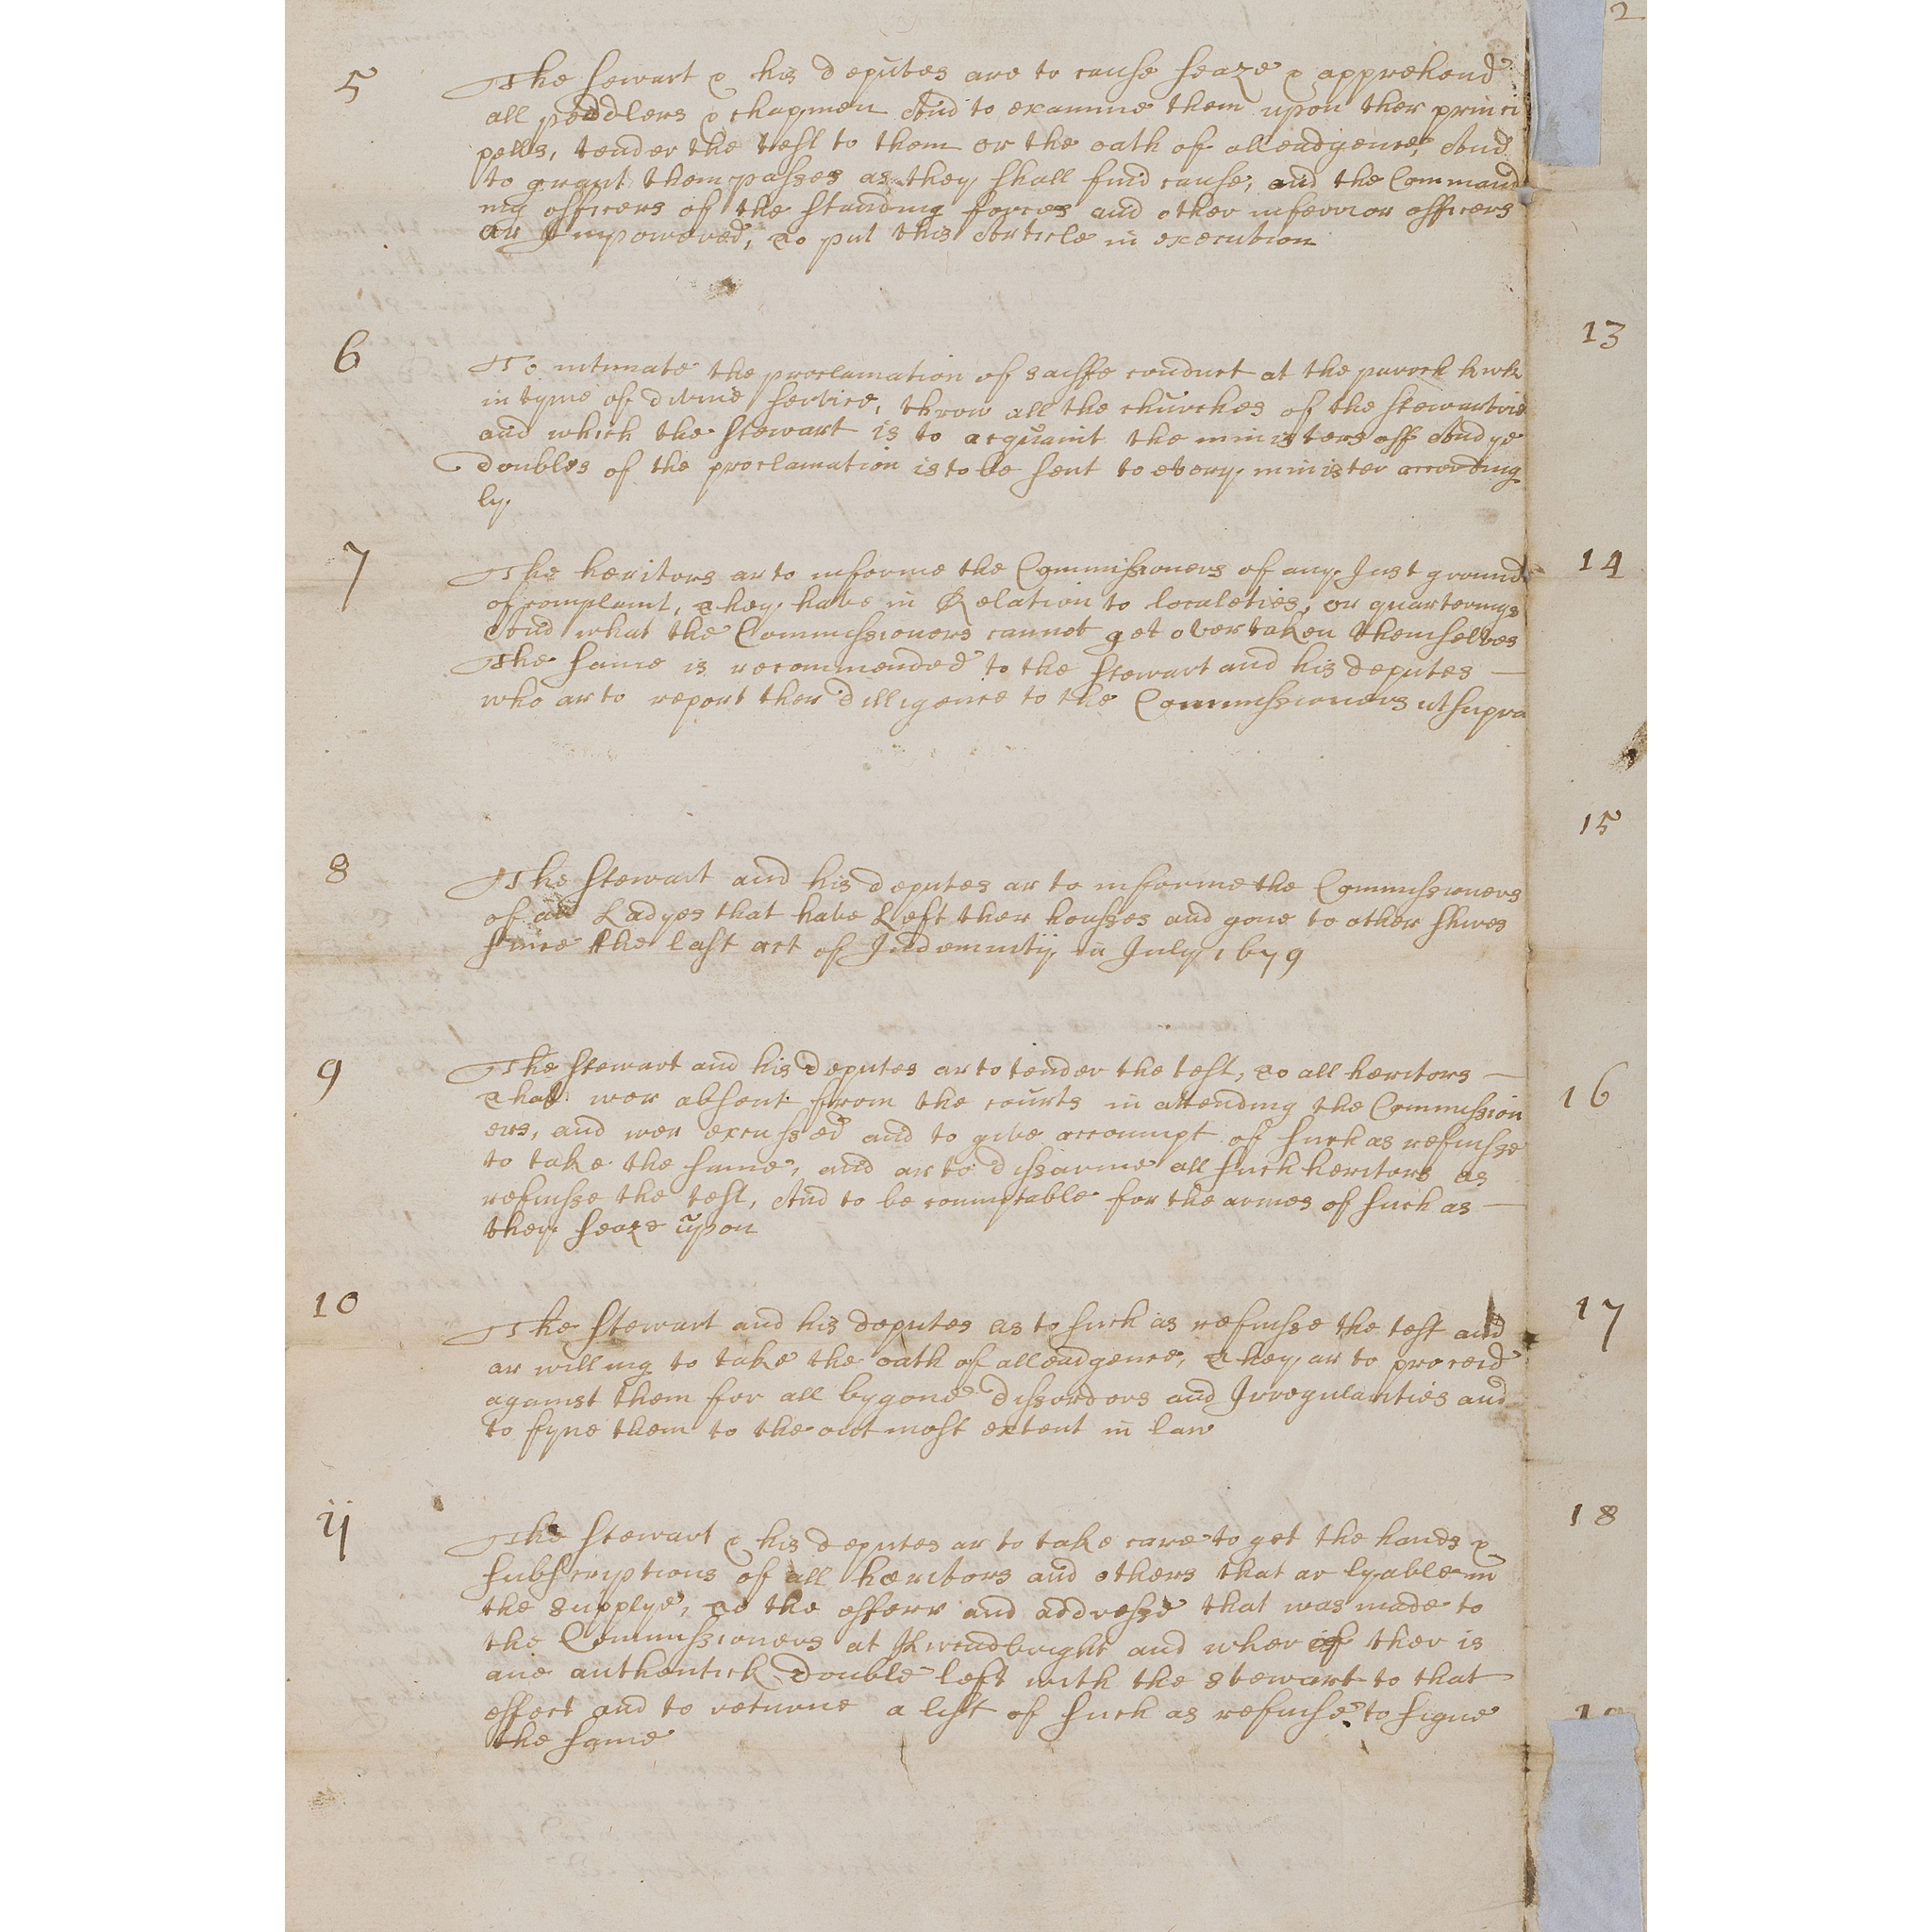 2
5
The Stewart & his deputes are to cause seaze & apprehend
all peddlers & chapmen And to examine them upon ther princi
pells, tender the test to them or the oath of alleadgence, And
to grant them passes as they shall find cause, and the Command
ing officers of the standing forces and other inferrior officers
ar Impowered, to put this Article in execution
6
To intimate the proclamation of saiffe conduct at the paroch kirk
in tyme of divine service, throw all the churches of the stewartrie
and which the stewart is to acquaint the ministers off And ye
doubles of the proclamation is to be sent to every minister according
ly
7
The heritors ar to informe the Commissioners of any Just ground
of complaint, they have in Relation to localeties, or quarterings
And what the Commissioners cannot get overtaken themselves
The same is recommended to the stewart and his deputes
who ar to report ther dilligence to the Commissioners ut supra
8
The stewart and his deputes ar to informe the Commissioners
of all Ladyes that have Left ther housses and gone to other shires
since the last act of Indemnity in July 1679
9
The stewart and his deputes ar to tender the test, to all heritors
that wer absent from the courts in attending the Commission
ers, and wer excussed and to give accoumpt of such as refuisse
to take the same, and ar to dissarme all such heritors as
refuisse the test, And to be comptable for the armes of such as
they seaze upon
10
The stewart and his deputes as to such as refuisse the test and
ar willing to take the oath of alleadgence, they ar to proceid
against them for all bygone dissorders and Irregularities and
to fyne them to the outmost extent in law
11
The stewart & his deputes ar to take care to get the hands &
subscriptions of all heritors and others that ar lyable in
the supplye, to the offerr and addresse that was made to
the Commissioners at Kircudbright and wher of ther is
ane authentick double left with the stewart to that
effect and to returne a list of such as refuise to signe
the same
13
14
15
16
17
18